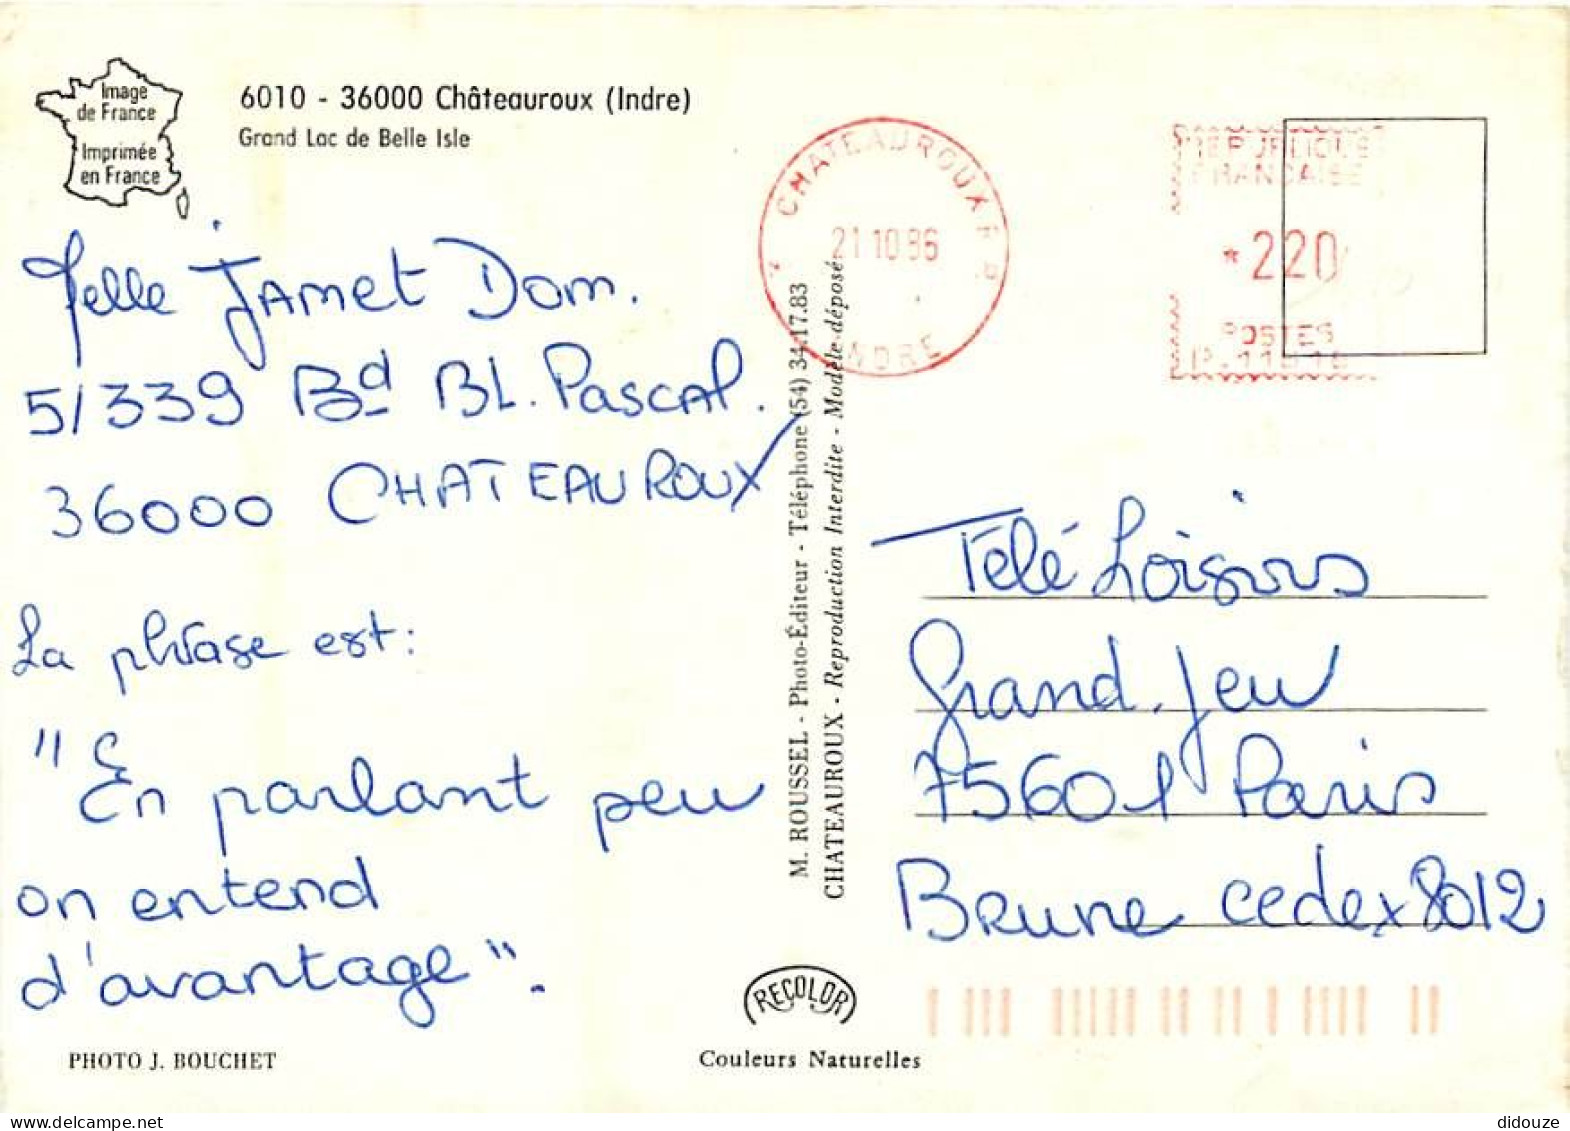 Image
de France
Imprimée
en France
6010 - 36000 Châteauroux (Indre)
Grand Lac de Belle Isle
CHATEAUROUX R P
21 10 86
INDRE
REPUBLIQUE
FRANCAISE
*220
POSTES
Melle JAMET Dom.
51339 Bd BL. PASCAL.
36000 CHATEAUROUX
La phrase est:
"En parlant peu
on entend
d'avantage".
M. ROUSSEL - Photo-Éditeur - Téléphone (54) 34.17.83
CHATEAUROUX - Reproduction Interdite - Modèle déposé
Télé Loisirs
Grand Jeu
75601 Paris
Brune cedex 8012
RECOLOR
Couleurs Naturelles
PHOTO J. BOUCHET
didouze